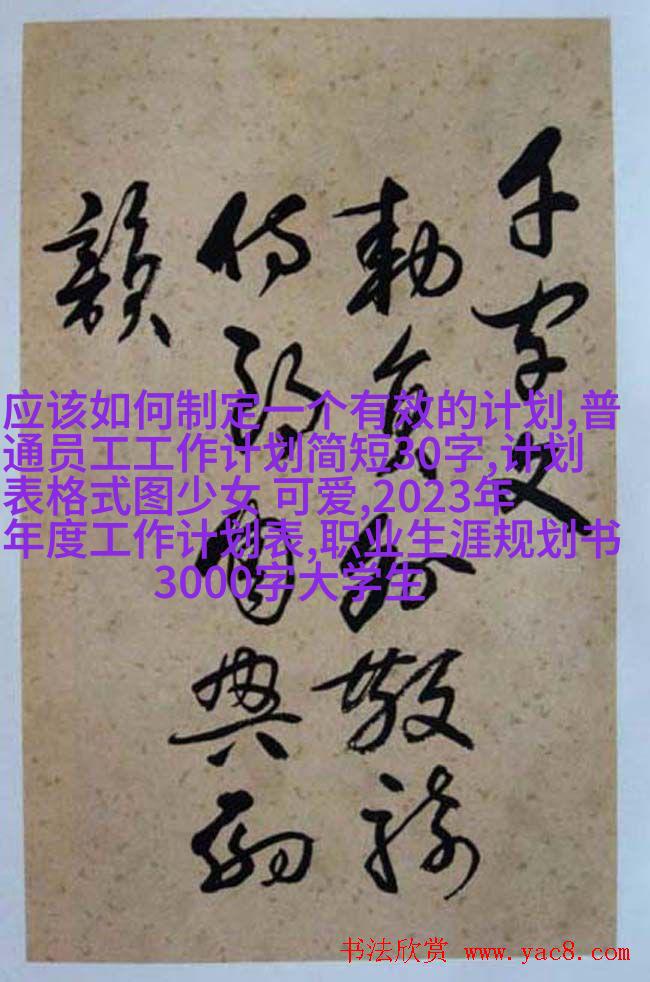 千字文
勅員外散騎
侍郎周興嗣
韻
应该如何制定一个有效的计划,普
通员工工作计划简短30字,计划
表格式图少女 可爱,2023年
年度工作计划表,职业生涯规划书
3000字大学生
书法欣赏 www.yac8.com